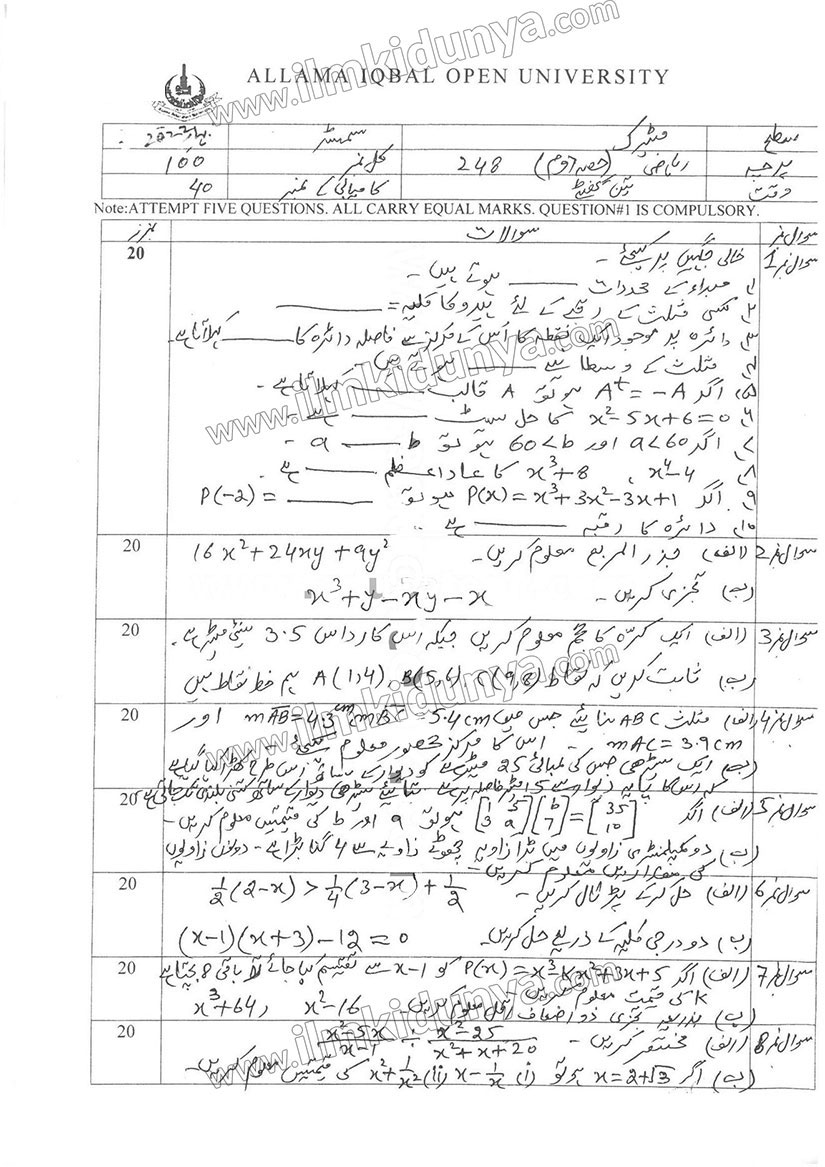 ALLAMA IQBAL OPEN UNIVERSITY
سطح میٹرک سمسٹر
پرچہ ریاضی (حصہ دوم) 248 کل نمبر 100
وقت تین گھنٹے کامیابی کے نمبر 40
Note:ATTEMPT FIVE QUESTIONS. ALL CARRY EQUAL MARKS. QUESTION#1 IS COMPULSORY.
سوال نمبر سوالات نمبرز
سوال نمبر 1 خالی جگہیں پر کیجئے ۔ 20
۱۔ مبداء کے محددات ____ ہوتے ہیں ۔
۲۔ کسی مثلث کے رقبے کے لئے ہیرو کا کلیہ = ____
۳۔ دائرہ پر موجود ایک نقطہ کا اُس کے مرکز سے فاصلہ دائرہ کا ____ کہلاتا ہے۔
۴۔ مثلث کے وسطانیے ____ ہوتے ہیں۔
۵۔ اگر Aᵗ = -A ہو تو A قالب ____ کہلاتا ہے ۔
۶۔ x²-5x+6=0 کا حل سٹ ____ ہے ۔
۷۔ اگر a<60 اور 60<b ہو تو b ____ a ۔
۸۔ x³+8 ، x⁴-4 کا عاد اعظم ____ ہے ۔
۹۔ اگر P(x)=x³+3x²-3x+1 ہو تو P(-2) = ____
۱۰۔ دائرہ کا رقبہ ____ ہے ۔
سوال نمبر 2 (الف) جذر المربع معلوم کریں۔ 16x²+24xy+9y² 20
(ب) تجزی کریں ۔ x³+y-xy-x
سوال نمبر 3 (الف) ایک کرّہ کا حجم معلوم کریں جبکہ اس کا رداس 3.5 سینٹی میٹر ہے۔ 20
(ب) ثابت کریں کہ نقاط A(1,4), B(5,6) C(9,8) ہم خط نقاط ہیں
سوال نمبر 4 (الف) مثلث ABC بنائیے جس میں mAB=4.3cm mBC=5.4cm اور 20
mAC=3.9cm ۔ اس کا مرکز محصور معلوم کیجئے ۔
(ب) ایک سیڑھی جس کی لمبائی 25 میٹر ہے کو دیوار کے ساتھ اس طرح کھڑا کیا گیا ہے
کہ اس کا پایہ دیوار سے 5 میٹر فاصلہ پر ہے۔ بتائیے سیڑھی دیوار کے ساتھ کتنی بلندی تک جاتی ہے
سوال نمبر 5 (الف) اگر ہو تو a اور b کی قیمتیں معلوم کریں ۔ 20
(ب) دو کمپلیمنٹری زاویوں میں بڑا زاویہ چھوٹے زاویے سے 4 گنا بڑا ہے ۔ دونوں زاویوں
کی مقداریں معلوم کریں ۔
سوال نمبر 6 (الف) حل کر کے پڑتال کریں ۔ ½(2-x) > ¼(3-x) + ½ 20
(ب) دو درجی کلیہ کے ذریعے حل کریں۔ (x-1)(x+3)-12=0
سوال نمبر 7 (الف) اگر P(x)=x³-Kx²+3x+5 کو x-1 سے تقسیم کیا جائے تو باقی 8 بچتا ہے 20
K کی قیمت معلوم کریں ۔
(ب) بذریعہ تجزی ذو اضعاف اقل معلوم کریں ۔ x³+64, x²-16
سوال نمبر 8 (الف) مختصر کریں ۔ (x²-5x)/(x-1) ÷ (x²-25)/(x²+x+20) 20
(ب) اگر x=2+√3 ہو تو (i) x-1/x (ii) x²+1/x² کی قیمتیں معلوم کریں۔
www.ilmkidunya.com
www.ilmkidunya.com
www.ilmkidunya.com
www.ilmkidunya.com